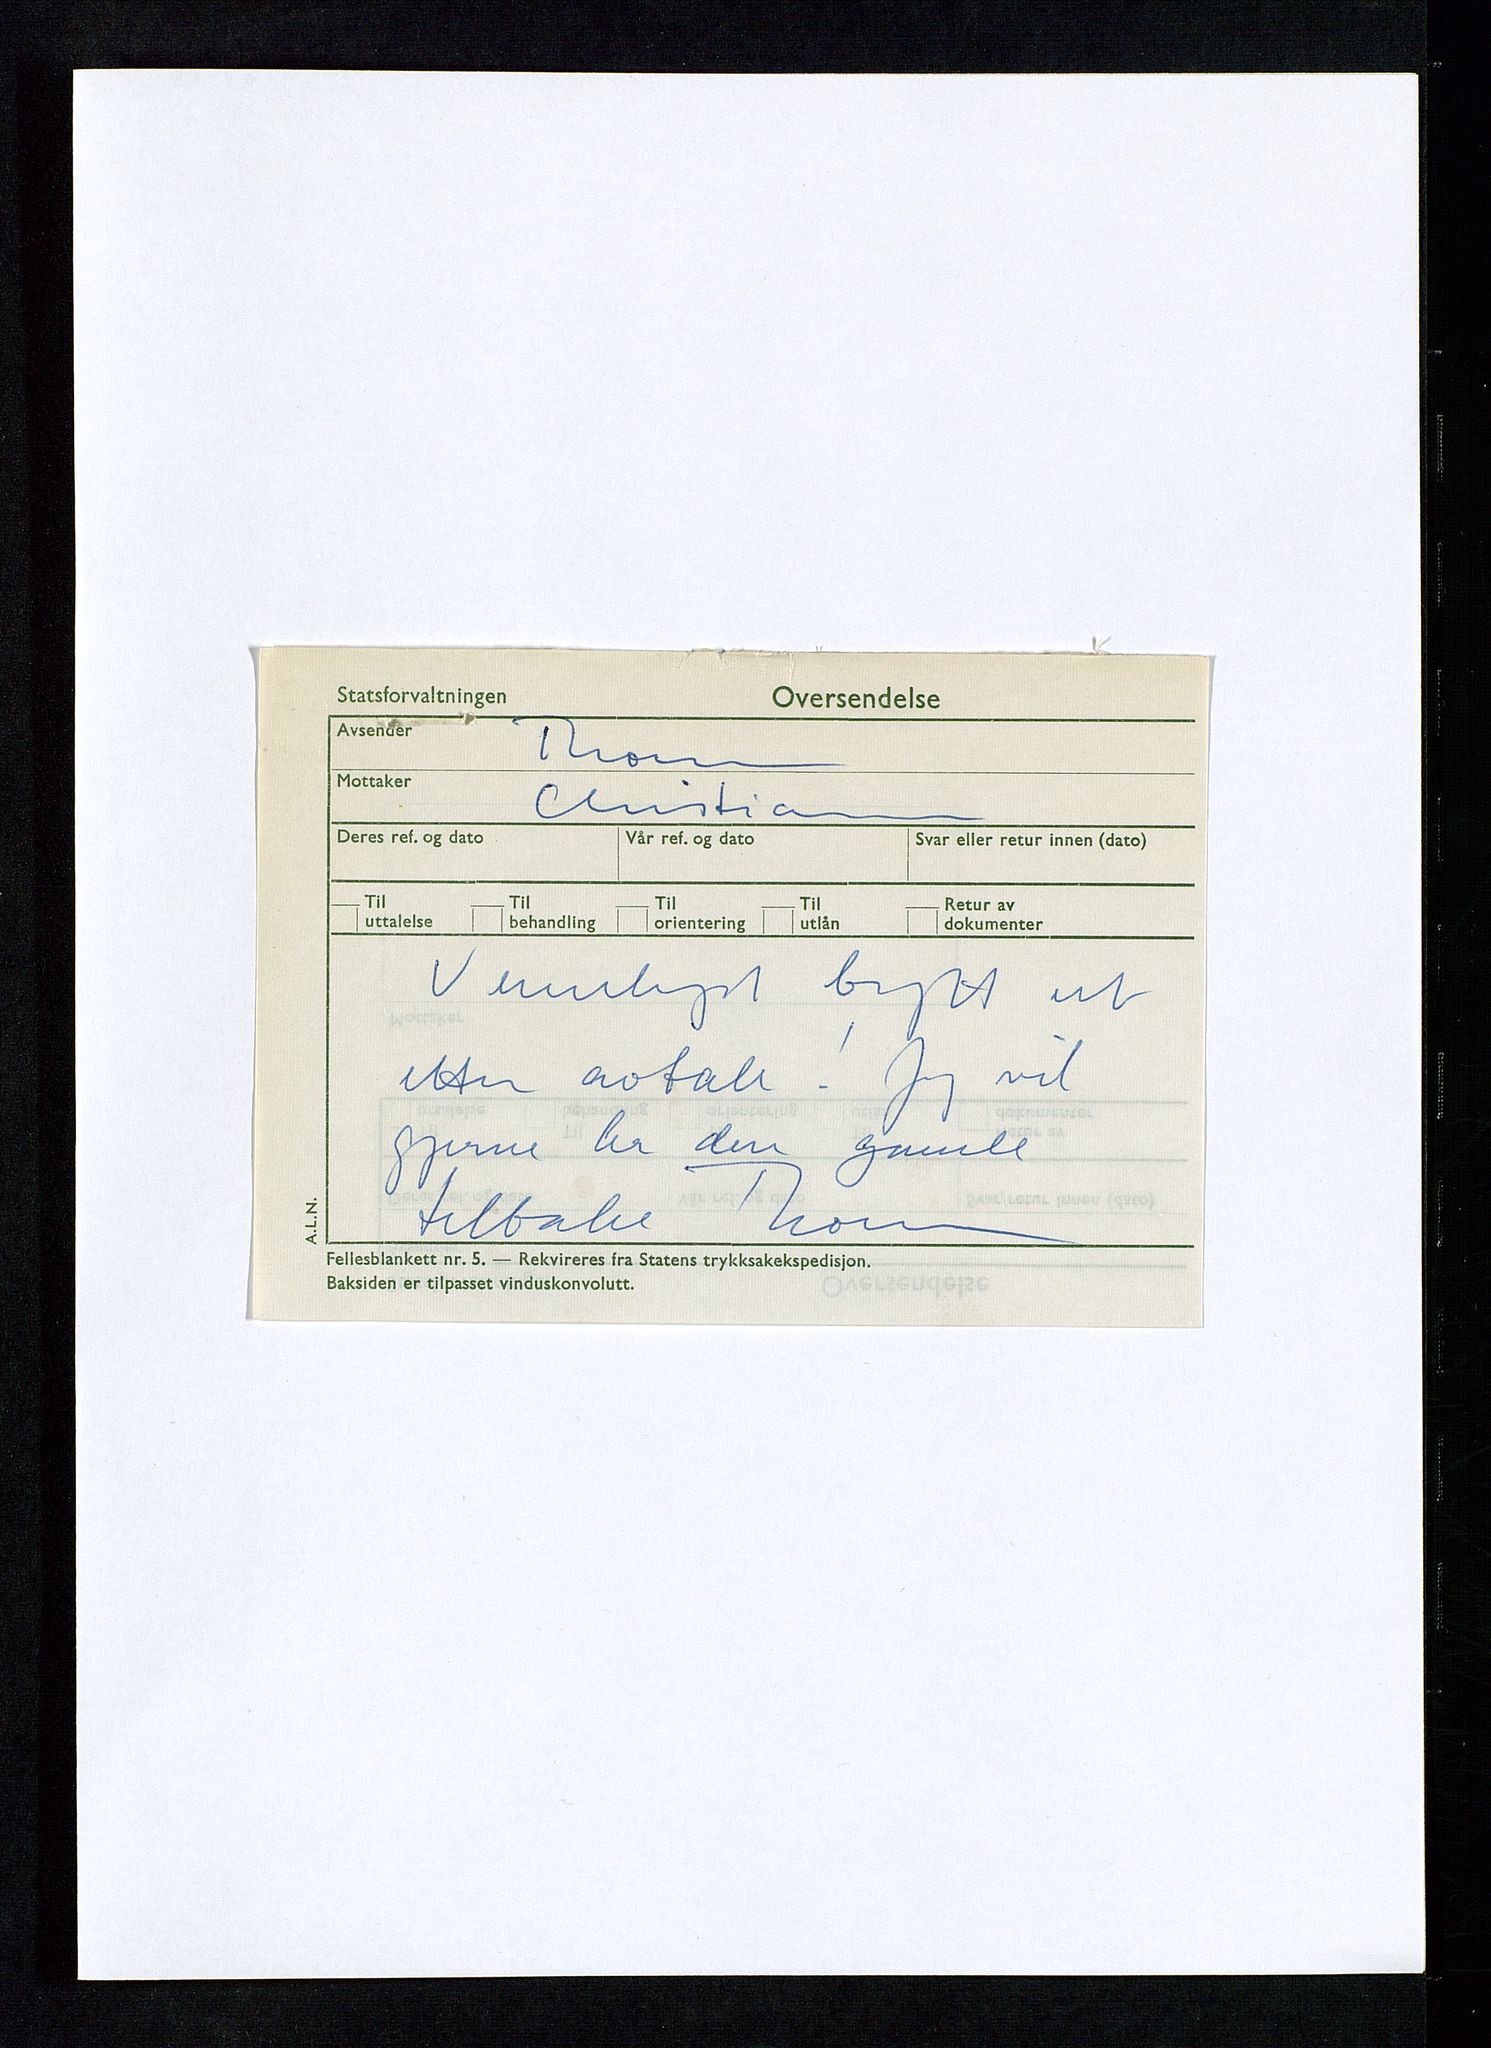 Statsforvaltningen Oversendelse
Avsender Thom
Mottaker Christian
Deres ref. og dato Vår ref. og dato Svar eller retur innen (dato)
Til uttalelse Til behandling Til orientering Til utlån Retur av dokumenter
Vennligst bytt ut
etter avtale! Jeg vil
gjerne ha den gamle
tilbake Thom
A.L.N.
Fellesblankett nr. 5. — Rekvireres fra Statens trykksakekspedisjon.
Baksiden er tilpasset vinduskonvolutt.